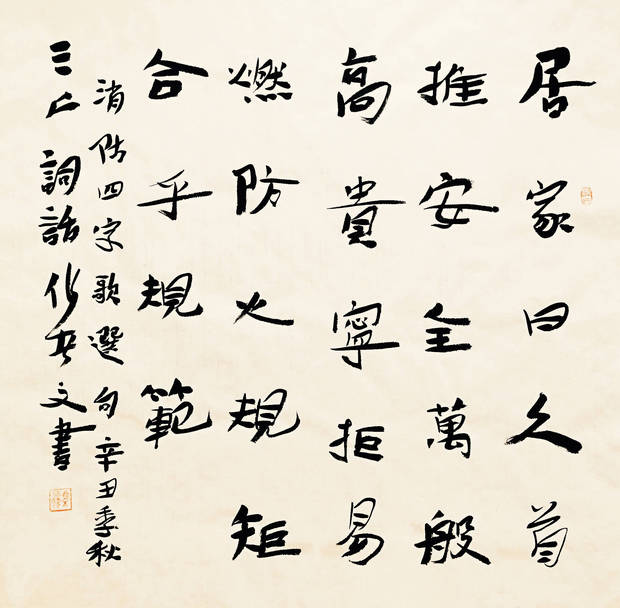 居家日久首
推安全萬般
高貴寧拒易
燃防火規矩
合乎規範
消防四字歌選句辛丑季秋
詞話 文書